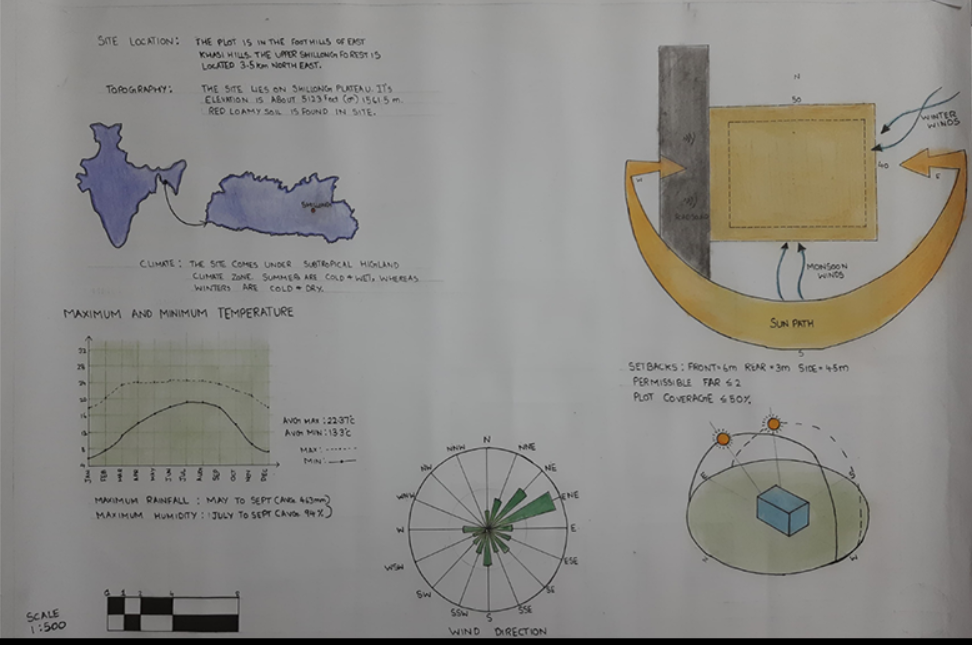 SITE LOCATION: THE PLOT IS IN THE FOOTHILLS OF EAST
KHASI HILLS. THE UPPER SHILLONG FOREST IS
LOCATED 3.5 KM NORTH EAST.
TOPOGRAPHY: THE SITE LIES ON SHILLONG PLATEAU. IT'S
ELEVATION IS ABOUT 5123 Feet (or) 1561.5 m.
RED LOAMY SOIL IS FOUND IN SITE.
SHILLONG
CLIMATE: THE SITE COMES UNDER SUBTROPICAL HIGHLAND
CLIMATE ZONE. SUMMER ARE COLD & WET, WHEREAS
WINTERS ARE COLD & DRY.
MAXIMUM AND MINIMUM TEMPERATURE
32
28
24
20
16
12
8
JAN FEB MAR APR MAY JUN JUL AUG SEP OCT NOV DEC
AVGH MAX: 22.37°C
AVGH MIN: 13.3°C
MAX:
MIN:
MAXIMUM RAINFALL: MAY TO SEPT (AVGH 463mm)
MAXIMUM HUMIDITY: JULY TO SEPT (AVGH 94%)
SCALE
1:500
N
NNE
NE
ENE
E
ESE
SE
SSE
S
SSW
SW
WSW
W
WNW
NW
NNW
WIND DIRECTION
N
50
40
WINTER
WINDS
W
E
MONSOON
WINDS
SUN PATH
S
SETBACKS: FRONT=6m REAR=3m SIDE=4.5m
PERMISSIBLE FAR ≤ 2
PLOT COVERAGE ≤ 50%
E
S
W